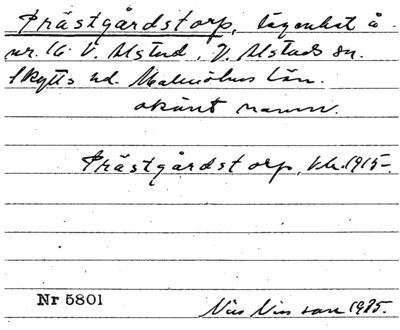 Prästgårdstorp, lägenhet å
nr. 16 V. Alstad, V. Alstads sn.
Skytts hd. Malmöhus län.
okänt namn.
Prästgårdstorp, kk. 1915-.
Nr 5801
Nils Nilsson 1985.